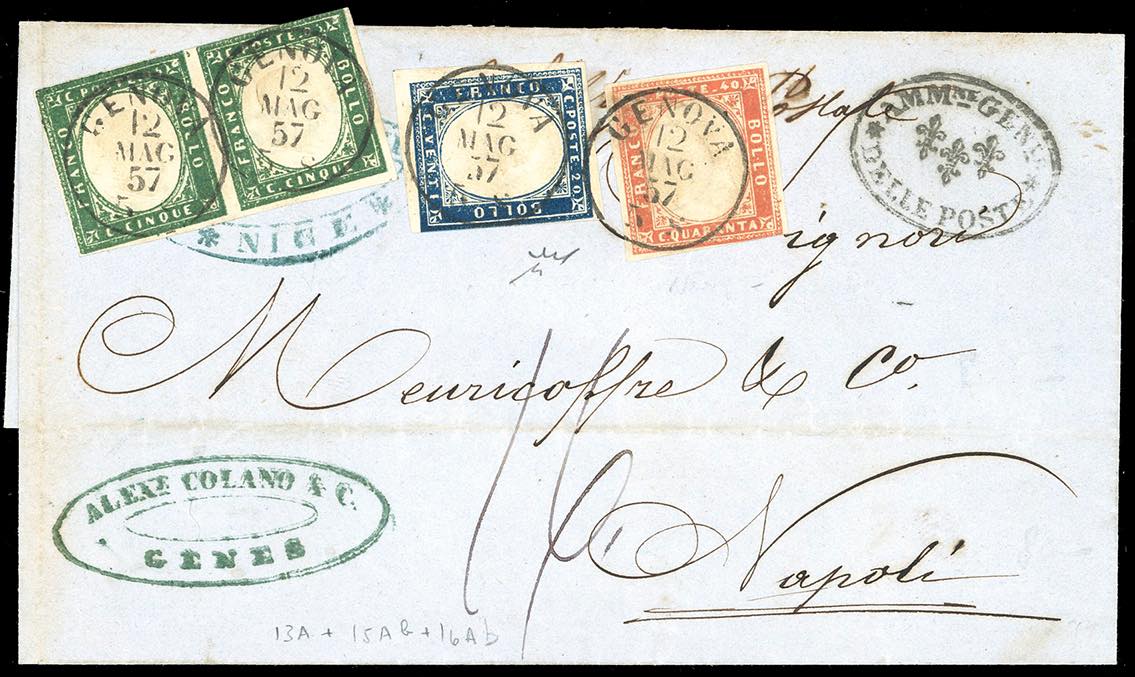 FRANCO C. POSTE BOLLO C. CINQUE
FRANCO C. POSTE BOLLO C. CINQUE
GENOVA
12
MAG
57
GENOVA
12
MAG
57
FRANCO C. POSTE 20 BOLLO C. VENTI
12
MAG
57
FRANCO 40 BOLLO C. QUARANTA
GENOVA
12
MAG
57
AMM.ne GEN.
DELLE POSTE
* NICE *
ignori
Meuricoffre & Co.
Napoli
ALEXe. COLANO & C.
GENES
13A + 15Ab + 16Ab